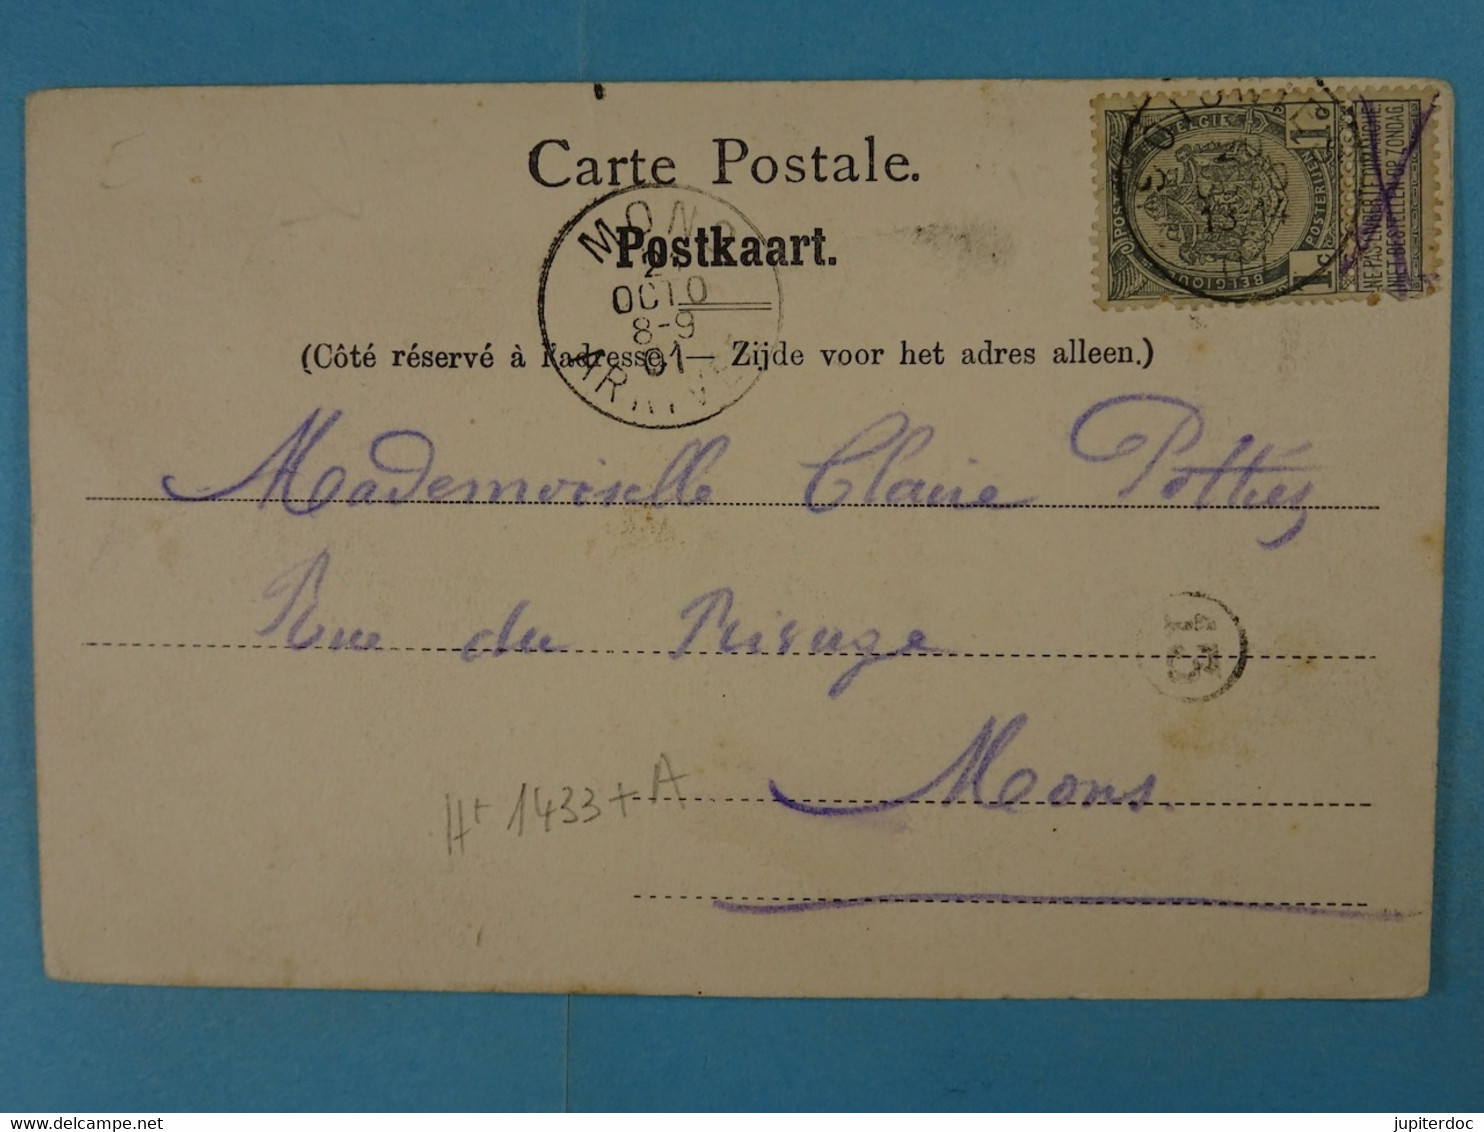 Carte Postale.
Postkaart.
(Côté réservé à l'adresse. — Zijde voor het adres alleen.)
MONS
21
OCTO
8-9
01
ARRIVÉE
BELGIE
1c
BELGIQUE
1c
NE PAS LIVRER LE DIMANCHE.
NIET BESTELLEN OP ZONDAG.
Mademoiselle Claire Pottiez
Rue du Rivage
Mons.
15
1433 + A
jupiterdoc